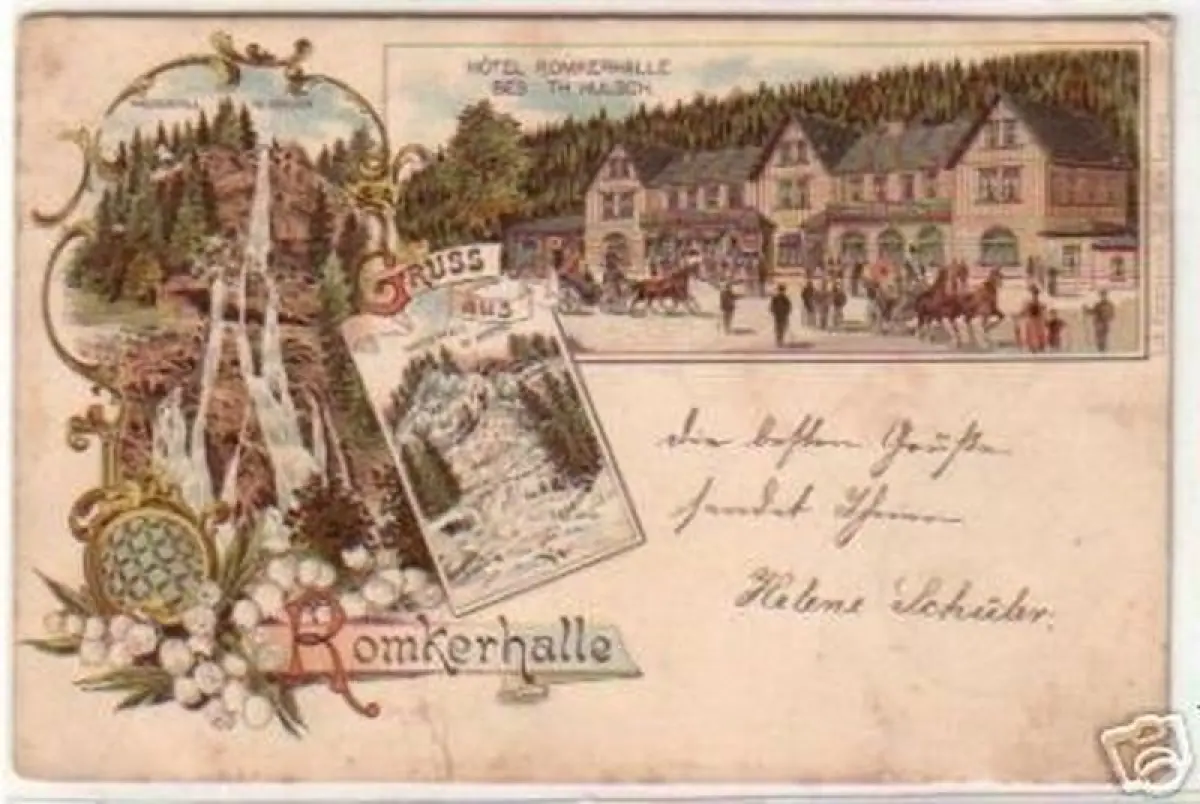 HÔTEL ROMKERHALLE
BES. TH. HULSCH
WASSERFALL
GRUSS
aus
die besten Grüße
sendet Ihnen
Helene Schüler.
Romkerhalle